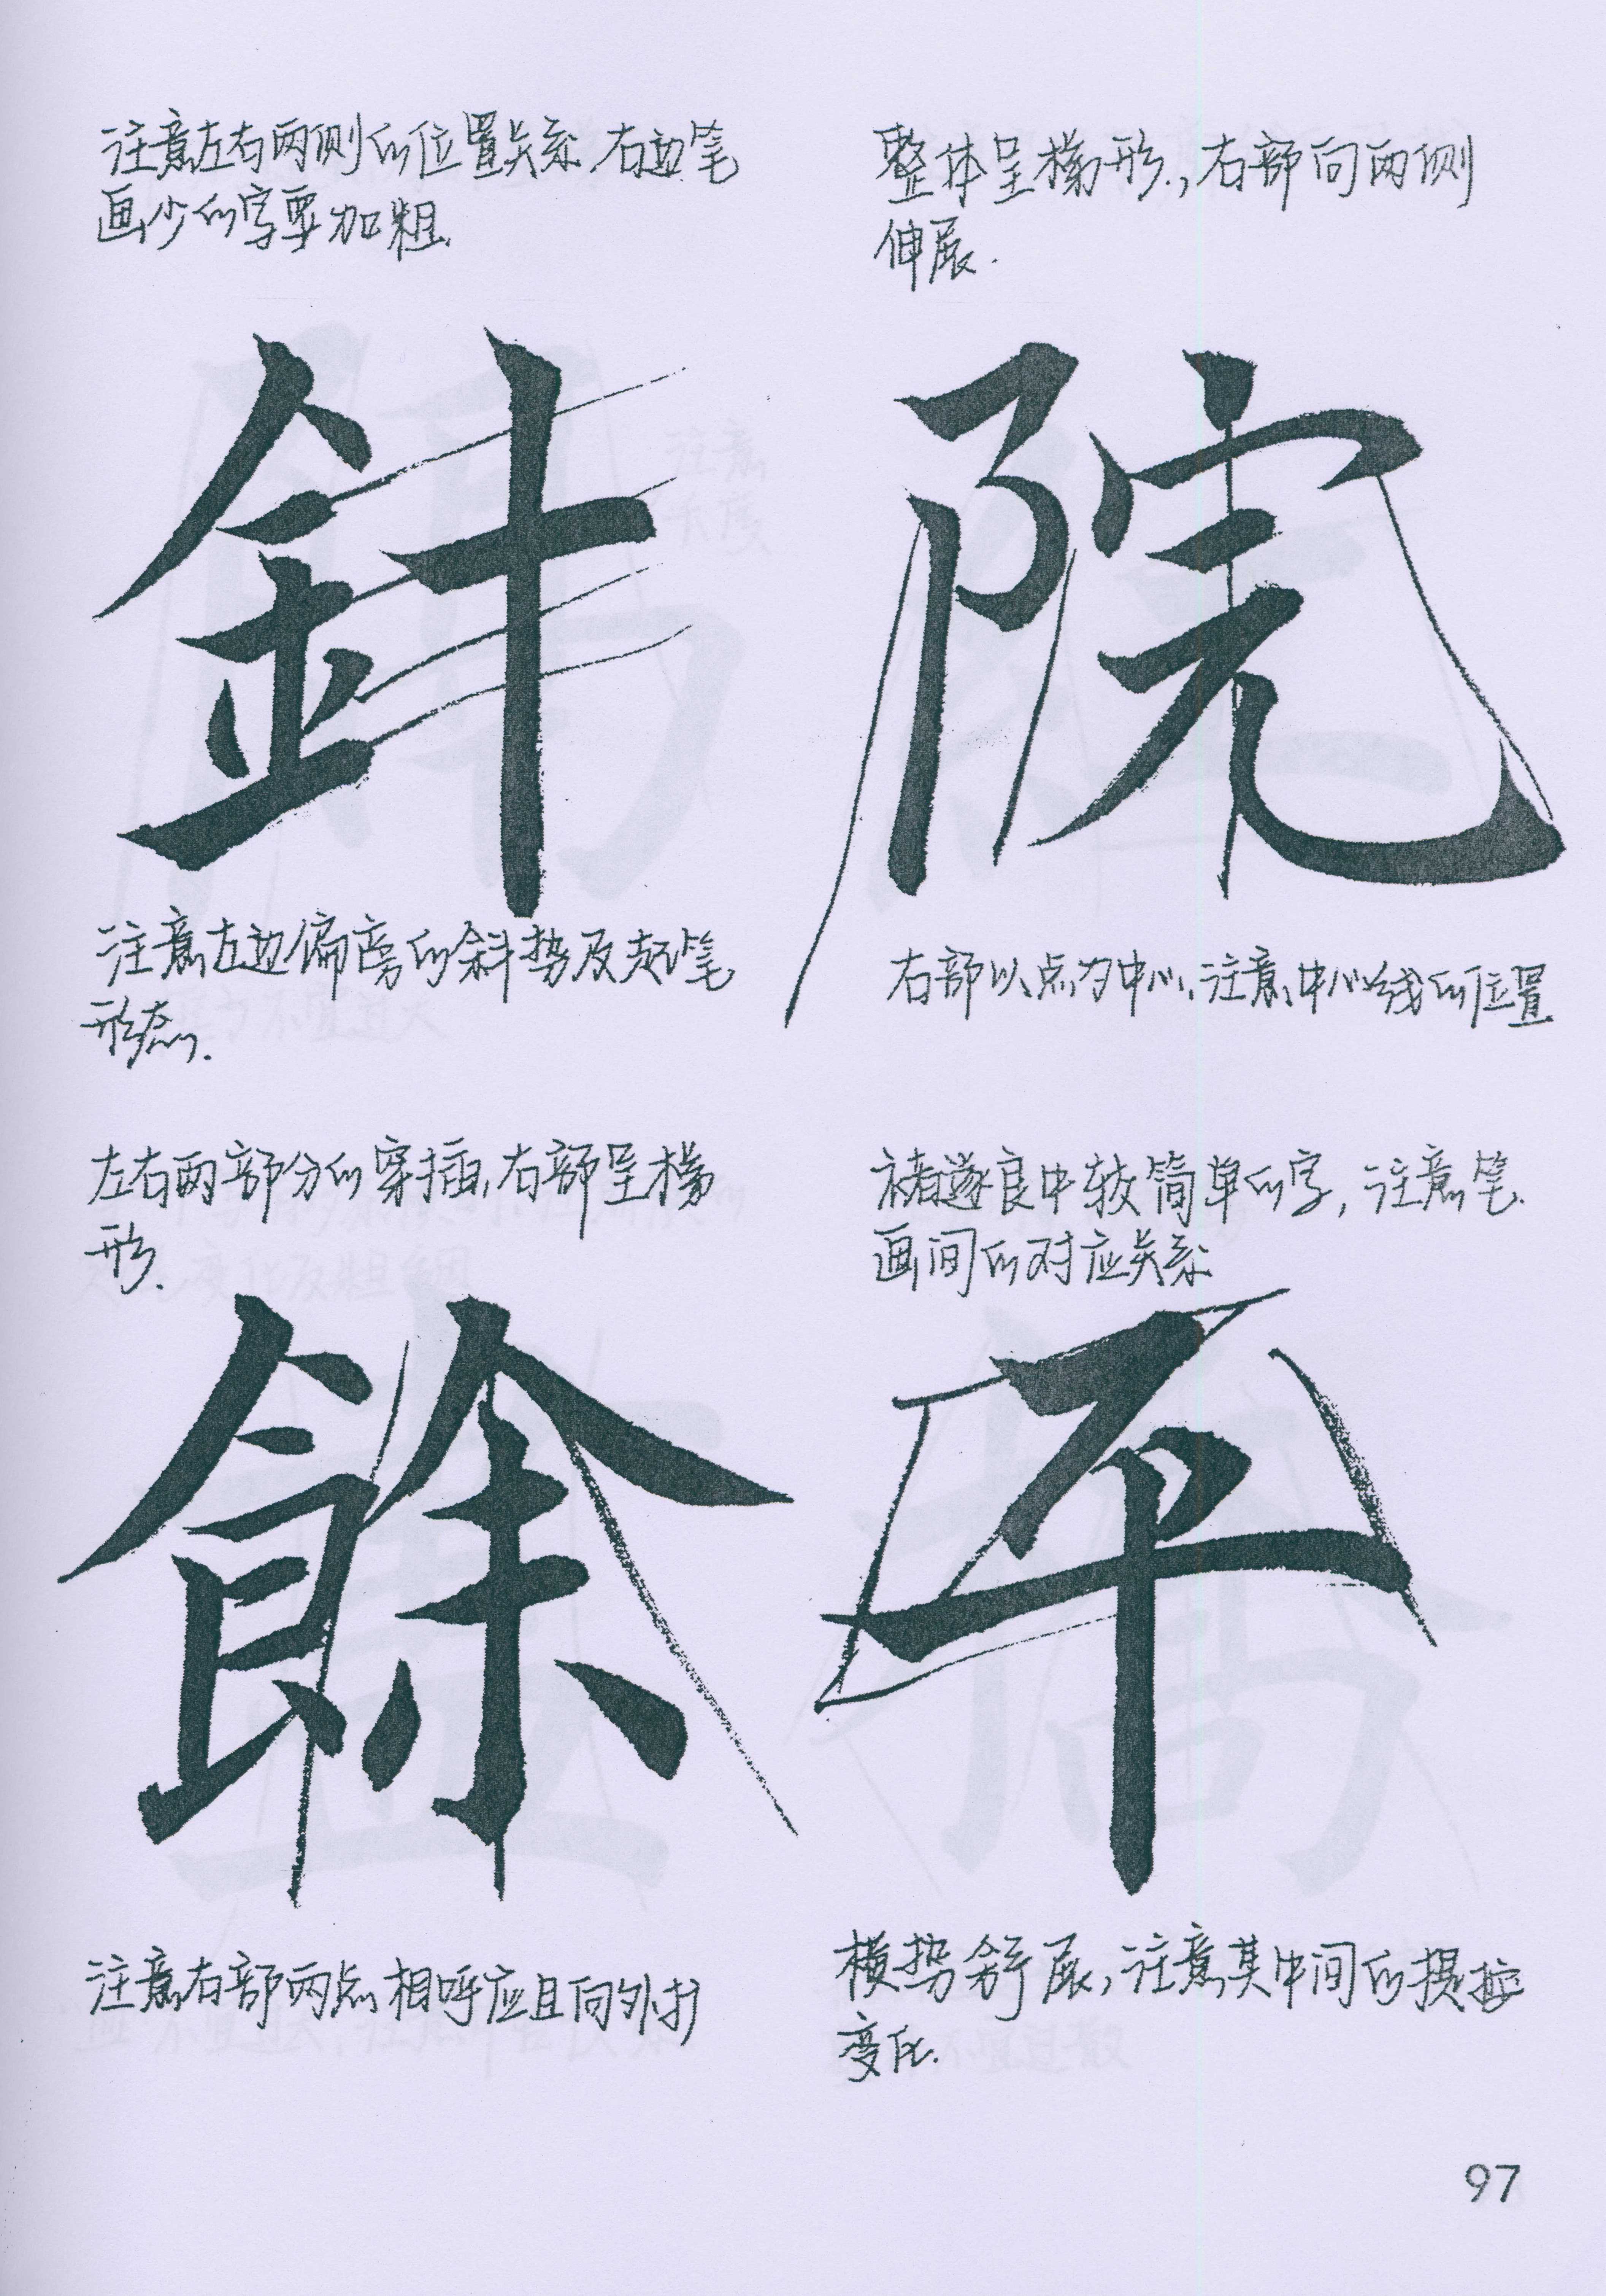 注意左右两侧的位置关系.右边笔
画少的字要加粗.
整体呈梯形.,右部向两侧
伸展.
針
院
注意左边偏旁的斜势及起笔
形态.
右部以点为中心,注意中心线的位置
左右两部分的穿插,右部呈梯
形.
褚遂良中较简单的字,注意笔
画间的对应关系
餘
平
注意右部两点相呼应且向外扩
横势舒展,注意其中间的提按
变化.
97